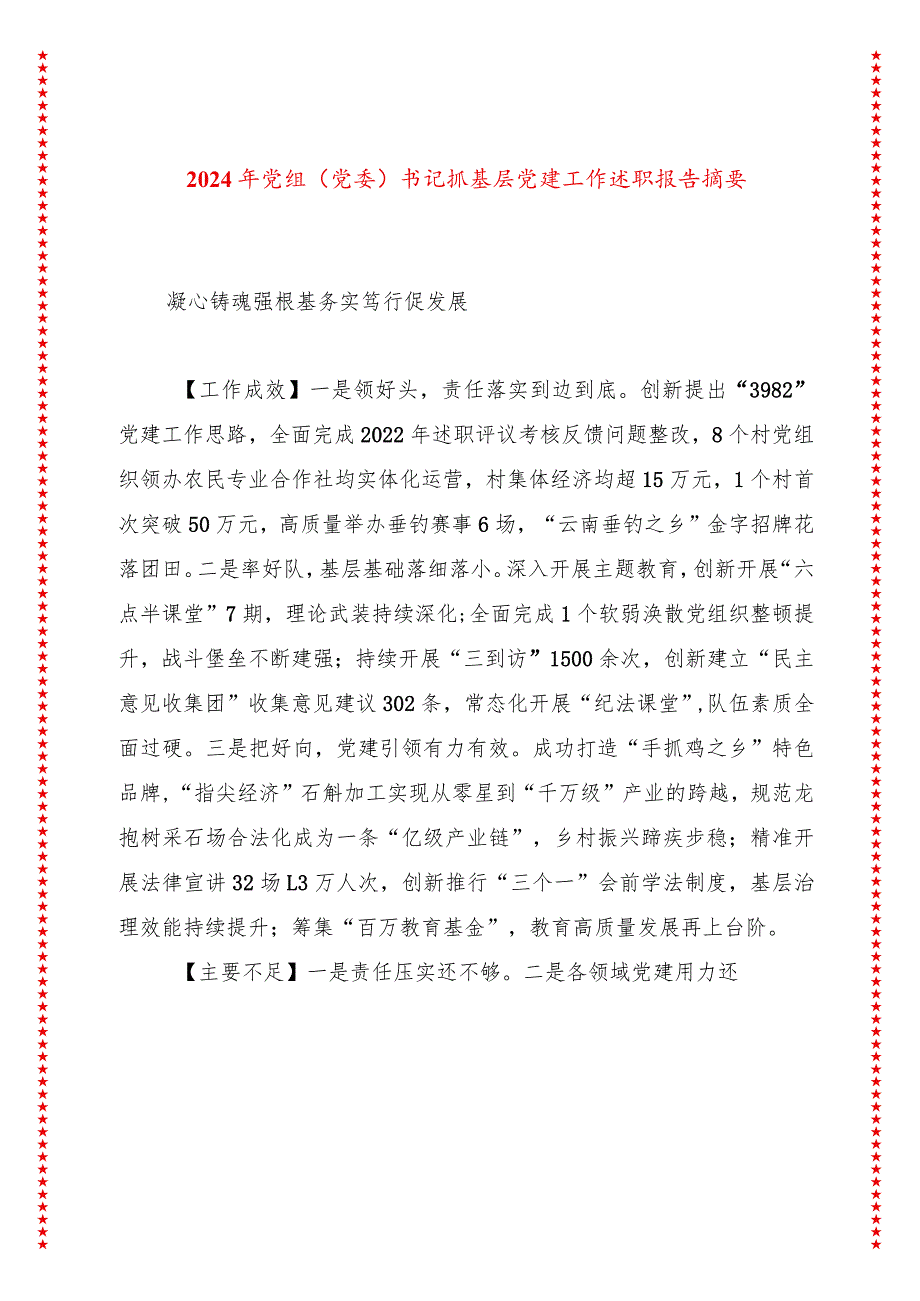 2024年党组（党委）书记抓基层党建工作述职报告摘要
凝心铸魂强根基务实笃行促发展
【工作成效】一是领好头，责任落实到边到底。创新提出“3982”
党建工作思路，全面完成2022年述职评议考核反馈问题整改，8个村党组
织领办农民专业合作社均实体化运营，村集体经济均超15万元，1个村首
次突破50万元，高质量举办垂钓赛事6场，“云南垂钓之乡”金字招牌花
落团田。二是率好队，基层基础落细落小。深入开展主题教育，创新开展“六
点半课堂”7期，理论武装持续深化;全面完成1个软弱涣散党组织整顿提
升，战斗堡垒不断建强；持续开展“三到访”1500余次，创新建立“民主
意见收集团”收集意见建议302条，常态化开展“纪法课堂”,队伍素质全
面过硬。三是把好向，党建引领有力有效。成功打造“手抓鸡之乡”特色
品牌,“指尖经济”石斛加工实现从零星到“千万级”产业的跨越，规范龙
抱树采石场合法化成为一条“亿级产业链”，乡村振兴蹄疾步稳；精准开
展法律宣讲32场L3万人次，创新推行“三个一”会前学法制度，基层治
理效能持续提升；筹集“百万教育基金”，教育高质量发展再上台阶。
【主要不足】一是责任压实还不够。二是各领域党建用力还